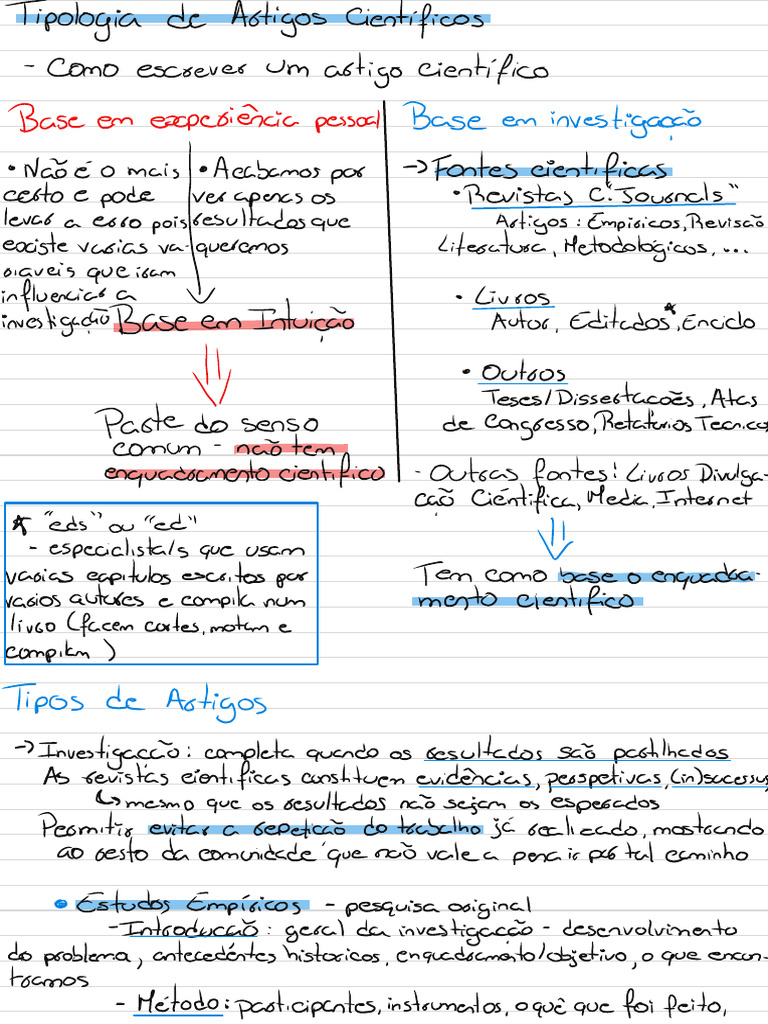 Tipologia de Artigos Científicos
- Como escrever um artigo científico
Base em experiência pessoal
• Não é o mais
certo e pode
levar a erro pois
existe varias va-
riaveis que iram
influenciar a
investigação
• Acabamos por
ver apenas os
resultados que
queremos
Base em Intuição
Parte do senso
comum - não tem
enquadramento científico
* "eds" ou "ed"
- especialista/s que usam
varias capitulos escritos por
varios autores e compila num
livro (facem cortes, motam e
compilam)
Base em investigação
→ Fontes científicas
• Revistas C. "Journals"
Artigos: Empíricos, Revisão
Literatura, Metodológicos, ...
• Livros
Autor, Editados*, Enciclo
• Outros
Teses/Dissertações, Atas
de Congresso, Relatórios Tecnicos
- Outras fontes! Livros Divulga-
cação Científica, Media, Internet
Tem como base o enquadra-
mento científico
Tipos de Artigos
→ Investigação: completa quando os resultados são partilhados
As revistas científicas constituem evidências, perspetivas, (in)sucessos
↳ mesmo que os resultados não sejam os esperados
Permitir evitar a repetição do trabalho já realizado, mostrando
ao resto da comunidade que não vale a pena ir por tal caminho
• Estudos Empíricos - pesquisa original
- Introdução: geral da investigação - desenvolvimento
do problema, antecedentes historicos, enquadramento/objetivo, o que encon-
tramos
- Método: participantes, instrumentos, o quê que foi feito,